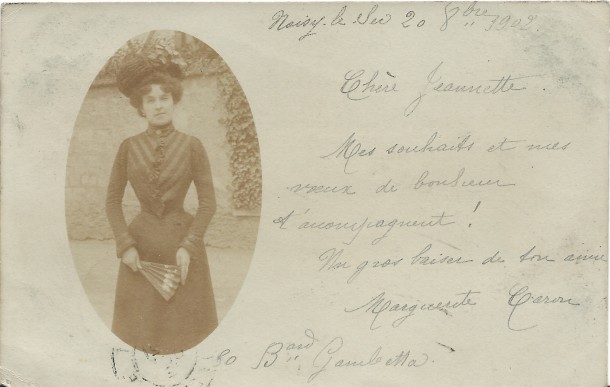 Noisy-le Sec 20 8bre 1902.
Chère Jeannette.
Mes souhaits et mes
vœux de bonheur
t'accompagnent !
Un gros baiser de ton amie
Marguerite Caron
80 Bard Gambetta.